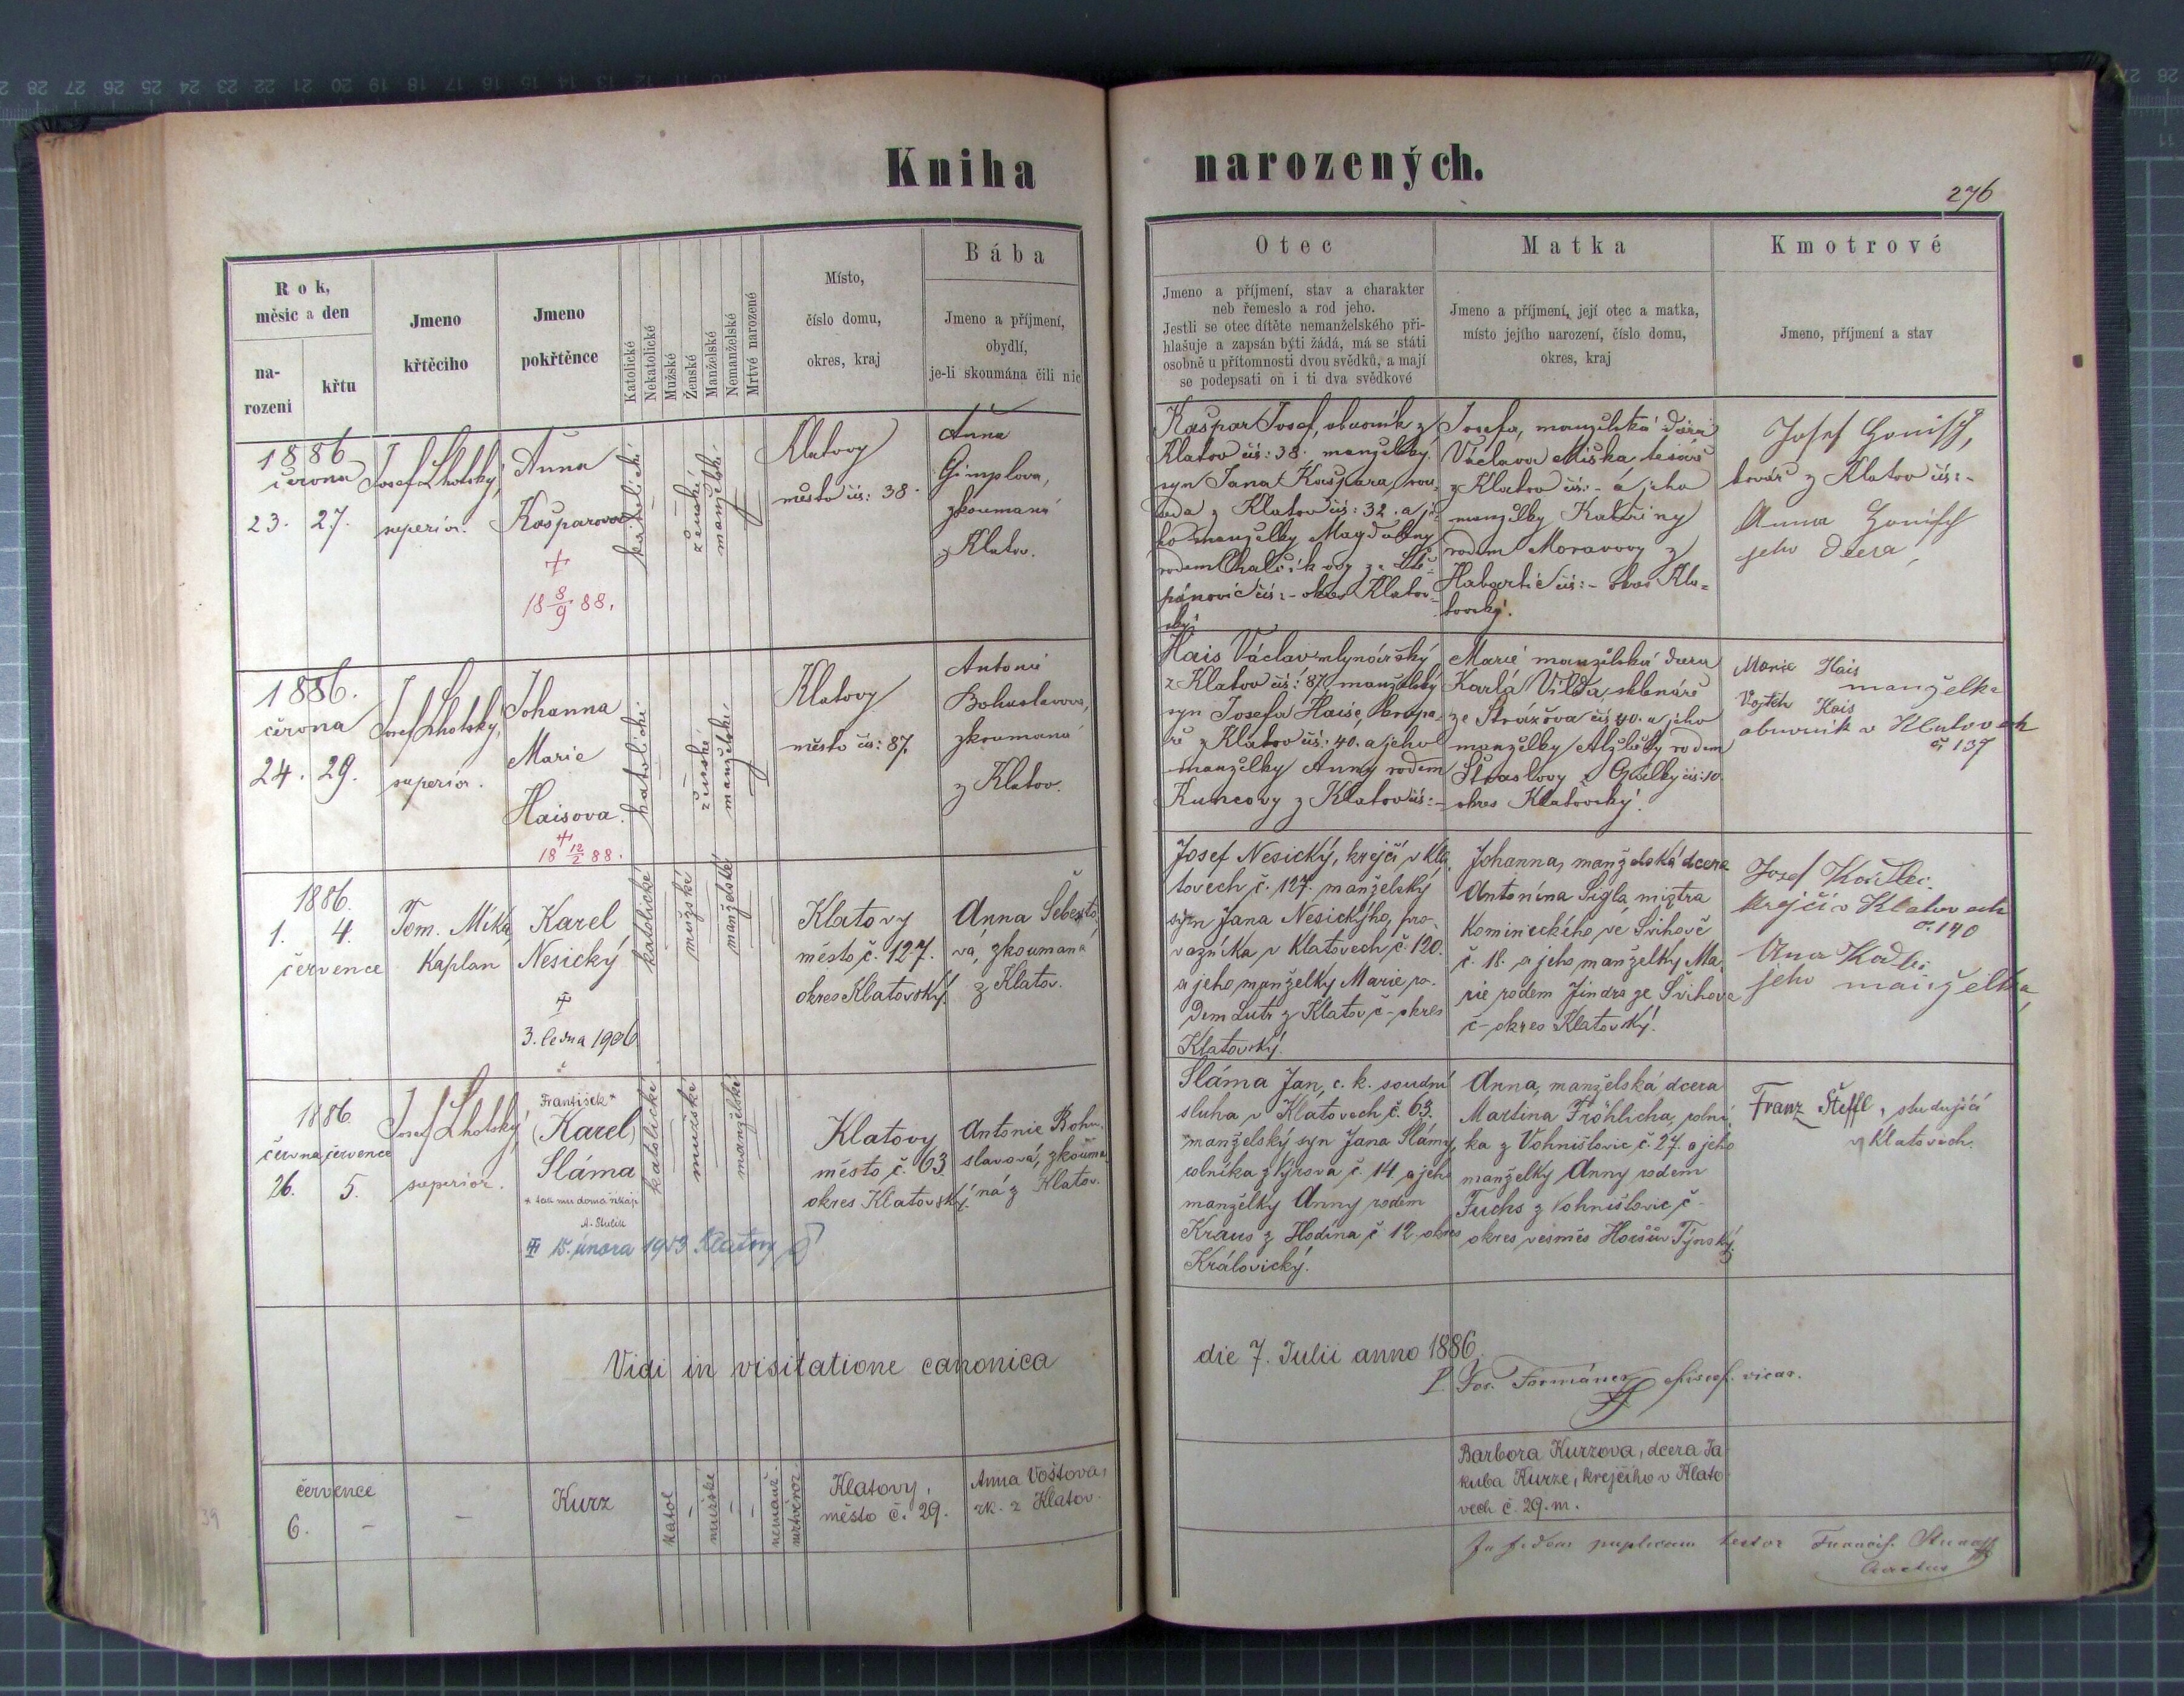 Kniha narozených.
276
Rok,
měsíc a den
na-
rozeni
křtu
Jmeno
křtěcího
Jmeno
pokřtěnce
Katolické
Nekatolické
Mužské
Ženské
Manželské
Nemanželské
Mrtvé narozené
Místo,
číslo domu,
okres, kraj
Bába
Jmeno a příjmení,
obydlí,
je-li skoumána čili nic
Otec
Jmeno a příjmení, stav a charakter
neb řemeslo a rod jeho.
Jestli se otec dítěte nemanželského při-
hlašuje a zapsán býti žádá, má se státi
osobně u přítomnosti dvou svědků, a mají
se podepsati on i ti dva svědkové
Matka
Jmeno a příjmení, její otec a matka,
místo jejího narození, číslo domu,
okres, kraj
Kmotrové
Jmeno, příjmení a stav
1886
června
23. 27.
Josef Lhotský,
superior.
Anna
Kašparova
+
18 8/9 88.
katolické
ženské
manželské
Klatovy
město čís: 38.
Anna
Gimplova,
zkoumaná
z Klatov.
Kašpar Josef, obuvník z
Klatov čís: 38. manželský
syn Jana Kašpara, sou-
z Klatov čís: 32. a je-
ho manželky Magdaleny
rodem z Ště-
pánovic čís: - okres Klatov-
ský.
Josefa, manželská dcera
Václava Miška tesaře
z Klatov čís: - a jeho
manželky Kateřiny
rodem Moravovy z
Habartic čís: - okres Kla-
tovský.
Josef Honisch,
kovář z Klatov čís: -
Anna Honisch
jeho dcera
1886.
června
24. 29.
Josef Lhotský,
superior.
Johanna
Marie
Haisova.
+
18 12/2 88.
katolické
ženské
manželské
Klatovy
město čís: 87.
Antonie
Bohuslavova,
zkoumaná
z Klatov.
Hais Václav mlynářský
z Klatov čís: 87, manželský
syn Josefa Haise, krupa-
ře z Klatov čís: 40. a jeho
manželky Anny rodem
Kuncovy z Klatov čís: -
Marie manželská dcera
Karla Vilda sklenáře
ze Strážova čís 40. a jeho
manželky Alžběty rodem
čís: 10.
okres Klatovský.
Marie Hais
manželka
Vojtěch Hais
obuvník v Klatovech
č. 137
1886.
1. 4.
července
Tom. Míka,
Kaplan
Karel
Nesický
3. ledna 1906
katolické
mužské
manželské
Klatovy
město č. 127.
okres Klatovský.
Anna Šebesto-
vá, zkoumaná
z Klatov.
Josef Nesický, krejčí v Kla-
tovech č. 127. manželský
syn Jana Nesickýho, pro-
vazníka v Klatovech č. 120.
a jeho manželky Marie ro-
dem Lutr z Klatov č - okres
Klatovský.
Johanna, manželská dcera
Antonína Šigla, mistra
kominického ve Švihově
č. 18. a jeho manželky Ma-
rie rodem Jindra ze Švihova
č - okres Klatovský.
Josef Kadlec
krejčí v Klatovech
č. 140
Ana Kadlec
jeho manželka
1886.
června července
26. 5.
Josef Lhotský,
superior.
František*
(Karel)
Sláma
* tak mu doma říkají
15. února 1953 Klatovy
katolické
mužské
manželské
Klatovy
město č. 63
okres Klatovský.
Antonie Bohu-
slavová, zkouma-
ná z Klatov.
Sláma Jan, c. k. soudní
sluha v Klatovech č. 63.
manželský syn Jana Slámy,
rolníka z č. 14 a jeho
manželky Anny rodem
Kraus z Hodína č 12. okres
Královický.
Anna, manželská dcera
Martina Fröhlicha, rolní-
ka z Vohništovic č. 27. a jeho
manželky Anny rodem
Fuchs z Vohništovic č -
okres vesměs Horšův Týnský.
Franz Steffl, studující
v Klatovech.
Vidi in visitatione canonica die 7. Julii anno 1886.
P. Jos. Formánek vicar.
července
6. -
-
Kurz
katol
-
mužské
-
-
nemanž.
mrtvěroz.
Klatovy,
město č. 29.
Anna Voštova,
zk. z Klatov.
Barbora Kurzova, dcera Ja
kuba Kurze, krejčího v Klato
vech č. 29. m.
In fidem testor Francis.
39